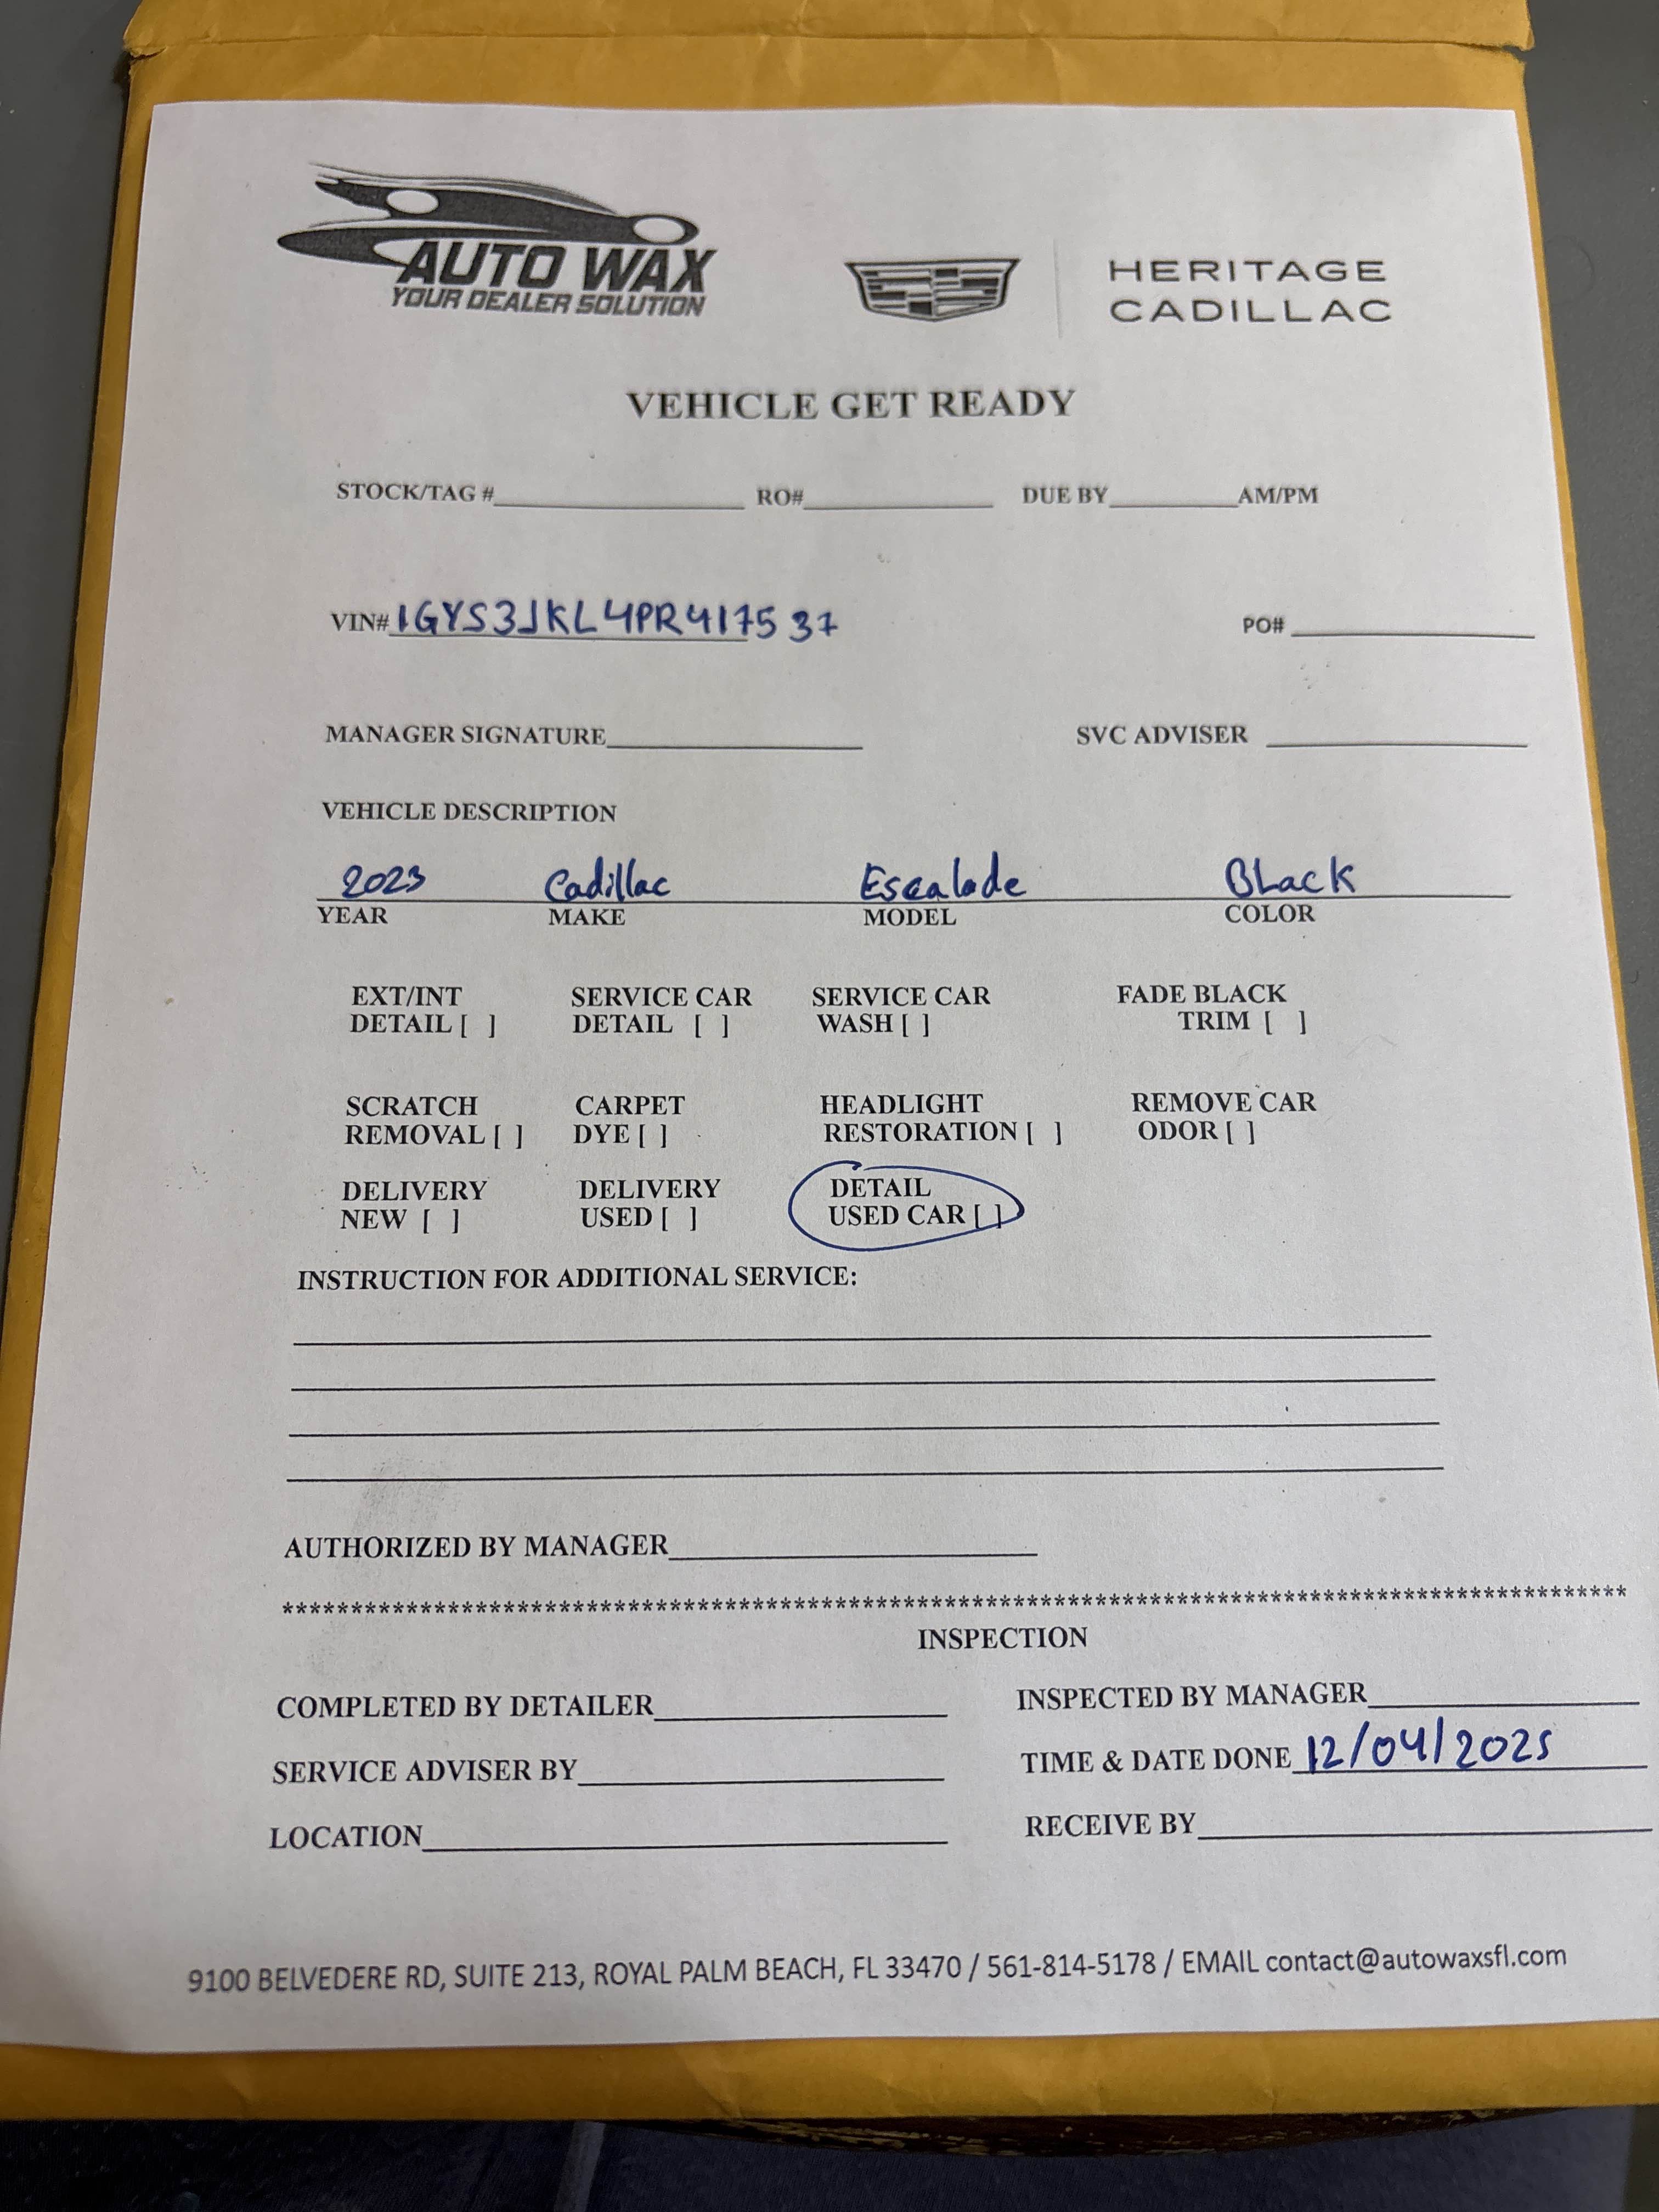 AUTO WAX
YOUR DEALER SOLUTION
HERITAGE
CADILLAC
VEHICLE GET READY
STOCK/TAG #____________ RO#____________ DUE BY________AM/PM
VIN# 1GYS3JKL4PR417537 PO#____________
MANAGER SIGNATURE____________ SVC ADVISER ____________
VEHICLE DESCRIPTION
2023 Cadillac Escalade BLack
YEAR MAKE MODEL COLOR
EXT/INT SERVICE CAR SERVICE CAR FADE BLACK
DETAIL [ ] DETAIL [ ] WASH [ ] TRIM [ ]
SCRATCH CARPET HEADLIGHT REMOVE CAR
REMOVAL [ ] DYE [ ] RESTORATION [ ] ODOR [ ]
DELIVERY DELIVERY DETAIL
NEW [ ] USED [ ] USED CAR [ ]
INSTRUCTION FOR ADDITIONAL SERVICE:
AUTHORIZED BY MANAGER____________
****************************************************************************************************
INSPECTION
COMPLETED BY DETAILER____________ INSPECTED BY MANAGER____________
SERVICE ADVISER BY____________ TIME & DATE DONE 12/04/2025
LOCATION____________ RECEIVE BY____________
9100 BELVEDERE RD, SUITE 213, ROYAL PALM BEACH, FL 33470 / 561-814-5178 / EMAIL contact@autowaxsfl.com